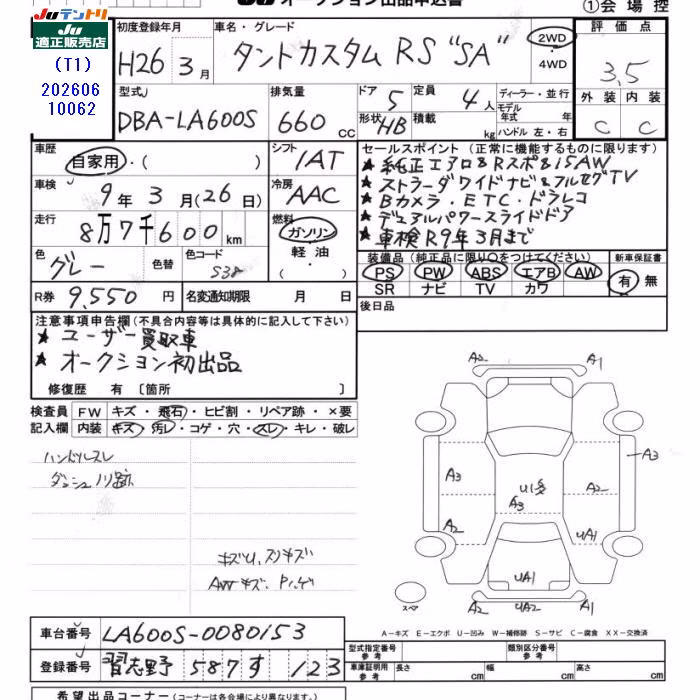 JUテントリ
JU適正販売店
(T1)
202606
10062
JU オークション出品申込書
①会場控
初度登録年月
車名・グレード
H26年3月
タントカスタム RS "SA"
2WD
4WD
評価点
3.5
外装 内装
C C
型式
DBA-LA600S
排気量
660 cc
ドア 5
定員 4人
形状 HB
積載 kg
ディーラー・並行
モデル年式 年
ハンドル 左・右
車歴
自家用・( )
シフト
IAT
車検
9年3月(26日)
冷房
AAC
走行
8万7千600km
燃料
ガソリン
軽油
( )
色
グレー
色替
色コード
S38
R券 9,550円
名変通知期限 月 日
セールスポイント (正常に機能するものに限ります)
★純正エアロ&Rスポ&15AW
★ストラーダワイドナビ&フルセグTV
★Bカメラ・ETC・ドラレコ
★デュアルパワースライドドア
★車検R9年3月まで
装備品(純正品に限り○をつけてください)
新車保証書
PS PW ABS エアB AW
SR ナビ TV カワ
有 無
後日品
注意事項申告欄(不具合内容等は具体的に記入して下さい)
★ユーザー買取車
★オークション初出品
修復歴 有〔箇所 〕
検査員 FW キズ・飛石・ヒビ割・リペア跡・×要
記入欄 内装 キズ・汚レ・コゲ・穴・スレ・キレ・破レ
ハンドルスレ
ダッシュノリ跡
キズU、スリキズ
AWキズ、Pハゲ
A2 A1
A3
A3 U1多 A2
A3
A2 UA1
UA1
スペア
A2 UA2 A1
A-キズ E-エクボ U-凹み W-補修跡 S-サビ C-腐食 XX-交換済
車台番号 LA600S-0080153
登録番号 習志野 587す 123
型式指定番号 参考
類別区分番号 参考
車庫証明用 参考 長さ cm 幅 cm 高さ cm
希望出品コーナー(コーナーは各会場により異なります。)